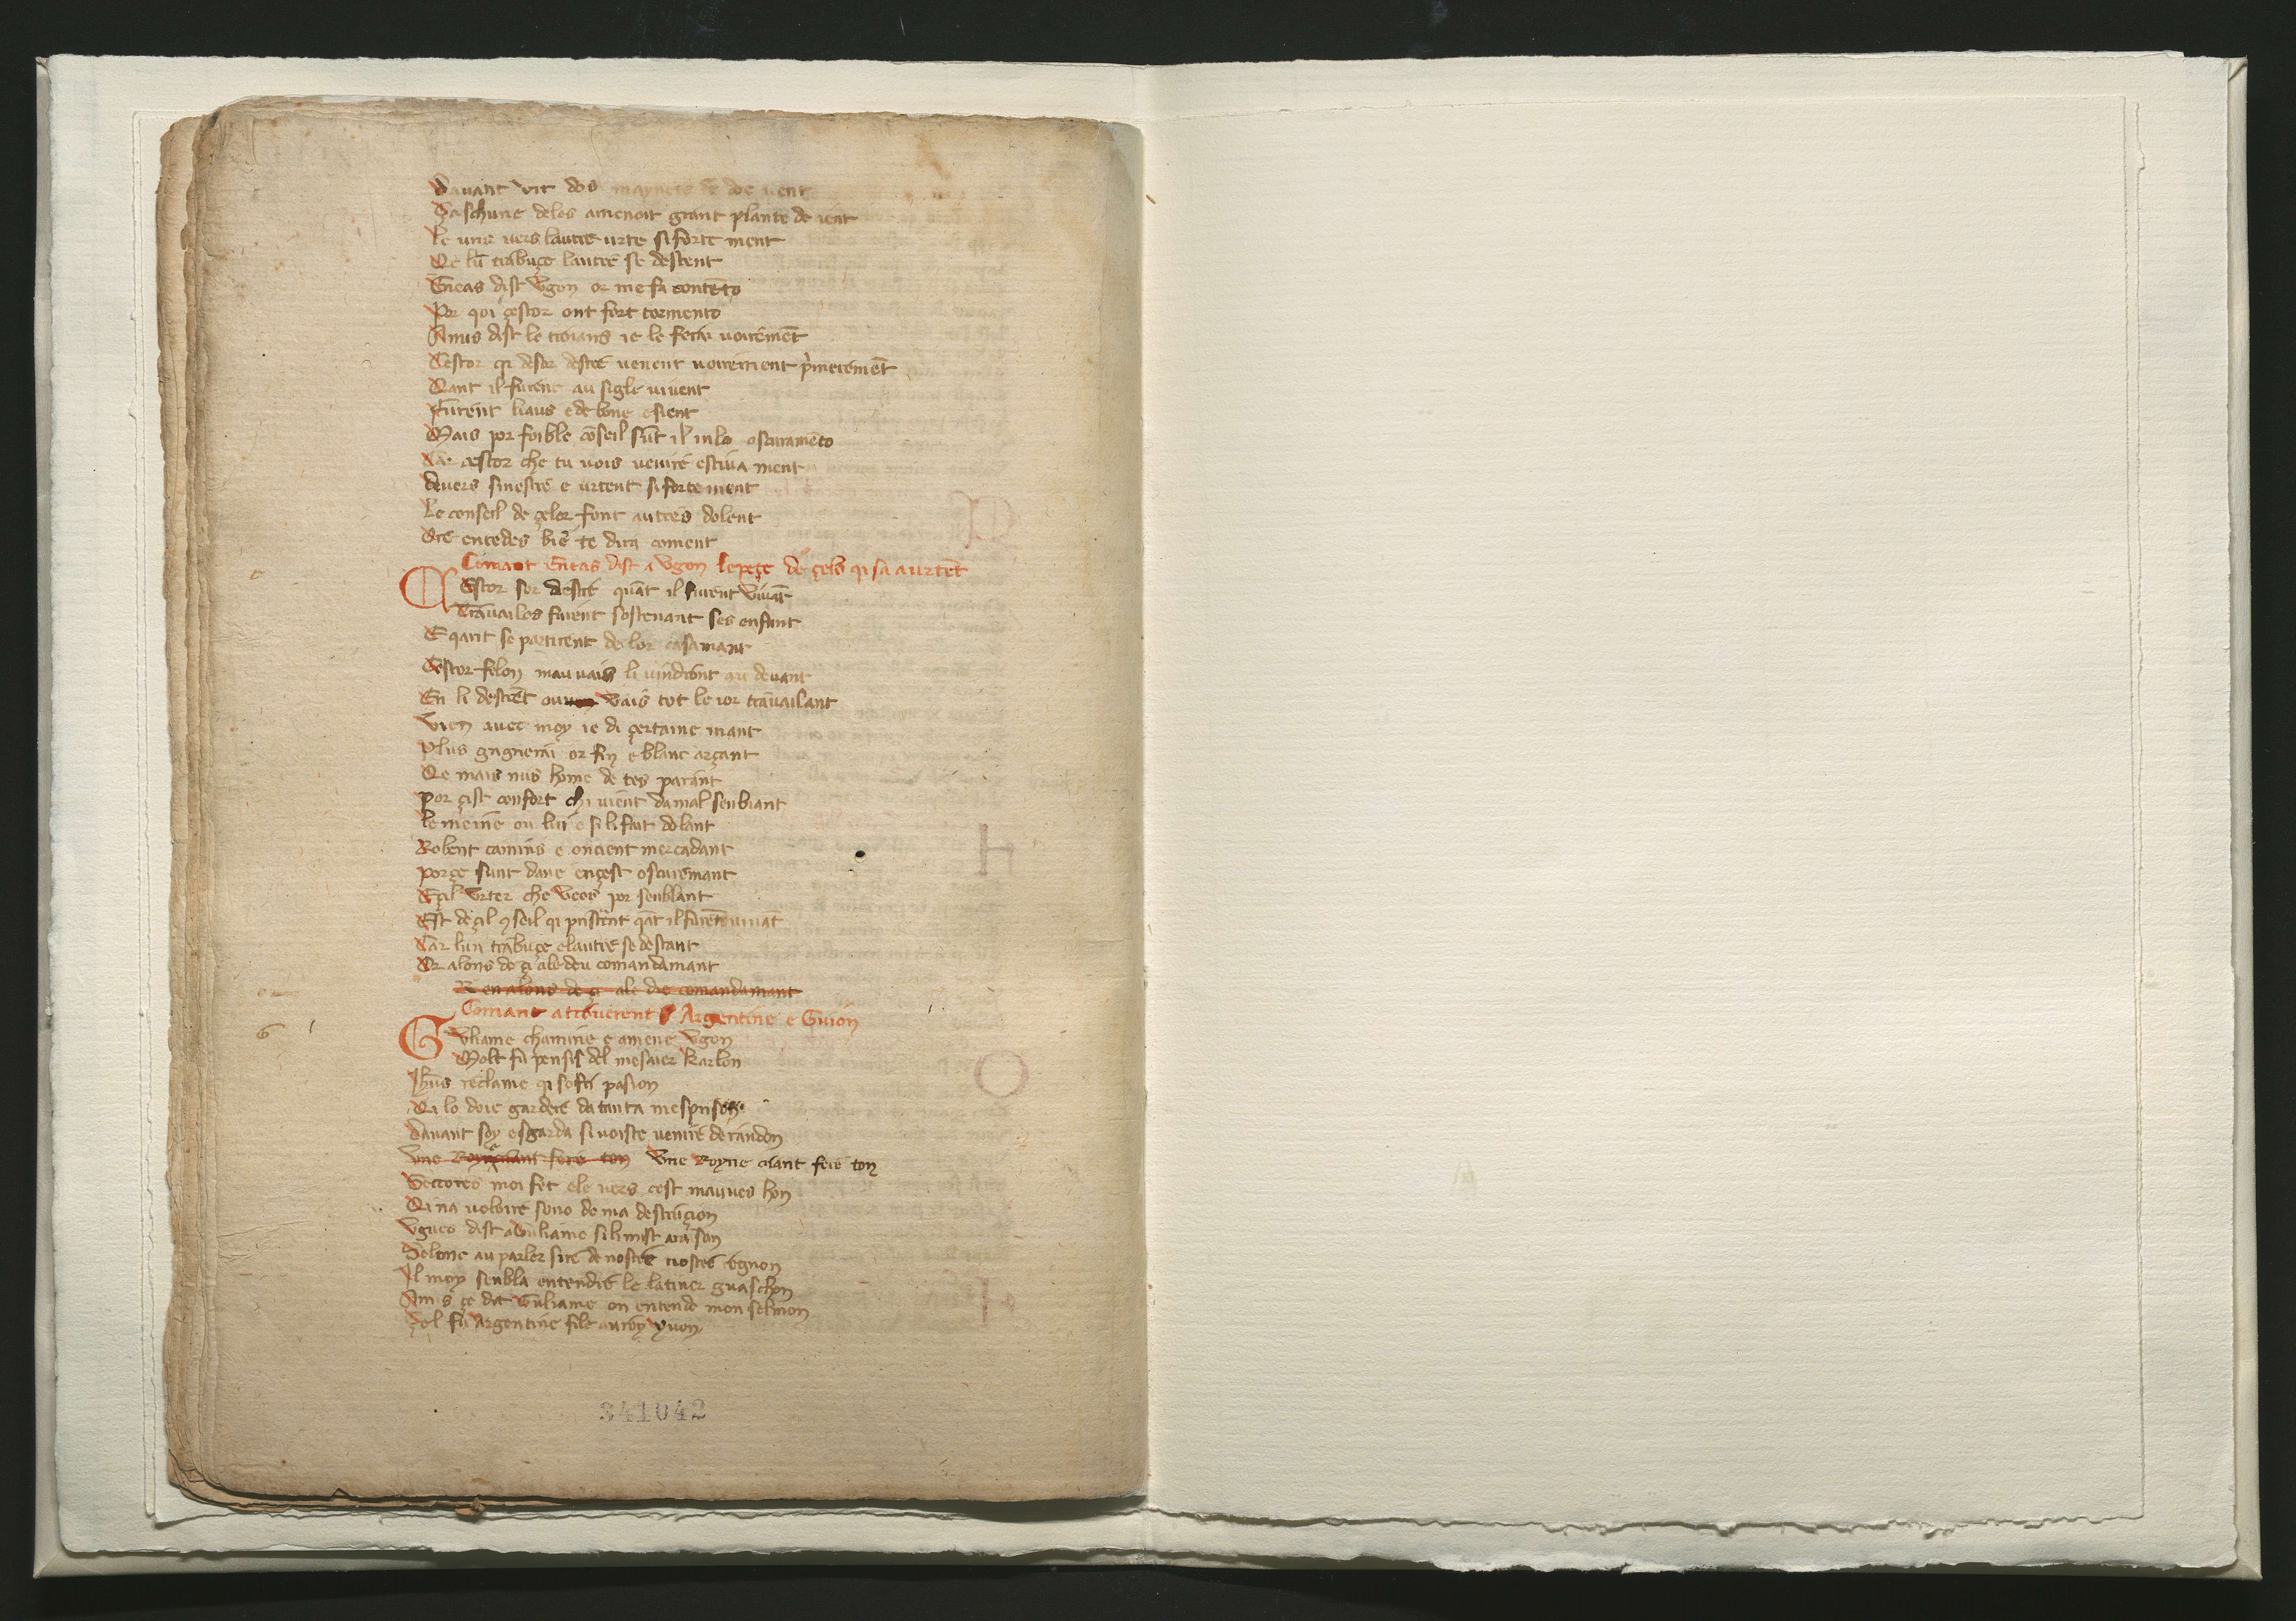 Dauant vit dos maynere de doe ient
Saschune deles amenoit grant plante de iēt
Le une uers lautre urte si forte ment
Qe lū trabuçe lautre se destent
Eneas dist Vgon or me fa contēto
Por qoi çestor ont fort tormento
Amis dist le troians ie le ferai uoiremēt
Cestor qi desor destre uenent uoirement p̃meremēt
Qant il furent au sigle uiuent
Furent liaus e de bone esient
Mais por foible cōseil sūt il in lo oscuramēto
Car cestor che tu uois uenire estiua ment
deuers sinestre e urtent si forte ment
Le conseil de çelor font autres dolent
Ore entedes biē te dira coment
Comant Eneas dist a Vgon le peçe de çels qi sa aurtēt
Cestor sor destre quāt il furent viuāt
Trauailos furent sostenant ses enfant
E qant se partirent de lor casamant
Cestor felon mauuais li uindront au deuant
En li destrēt ou vais tot le ior trauailant
Vien auec moy ie di çertaine mant
Plus gagnerai or fin e blanc arçant
Qe mais nus home de tes parant
Por çist confort chi uient da mal senbiant
Le meine ou lui e si li fait dolant
Robent camins e oncient mercadant
Por çe sunt dane en çest oscuremant
E çil vrter che vees por senblant
Est de çil ꝯseil qi pristrēnt qāt il furēt uiuāt
Car lun trabuçe e lautre se destant
Or alons de çi ale deu comandamant
R en alons de ci ale de comandamant
Comant atrouerent Argentine e Guion
Gvliame chamine e amene Vgon
Molt fu pensis del mesaier Karlon
Jhūs reclame qi sofri pasion
Qa lo doie gardere da tanta mesprison
Dauant soy esgarda si uoiste uenire de randon
Vne Royne Vne Royne clant fere ton
Secores moi fet ele uers cest mauues hon
Qi na uoloire sono de ma destruçion
Vgues dist a Vuliame si li mist a raison
Selone au parler sire de nostre nostre Vgnon
Il moy senbla entendre le latiner guaschon
Amis çe dit Vuliame on entende mon selmon
Çel fu Argentine file au roy yuon
341042